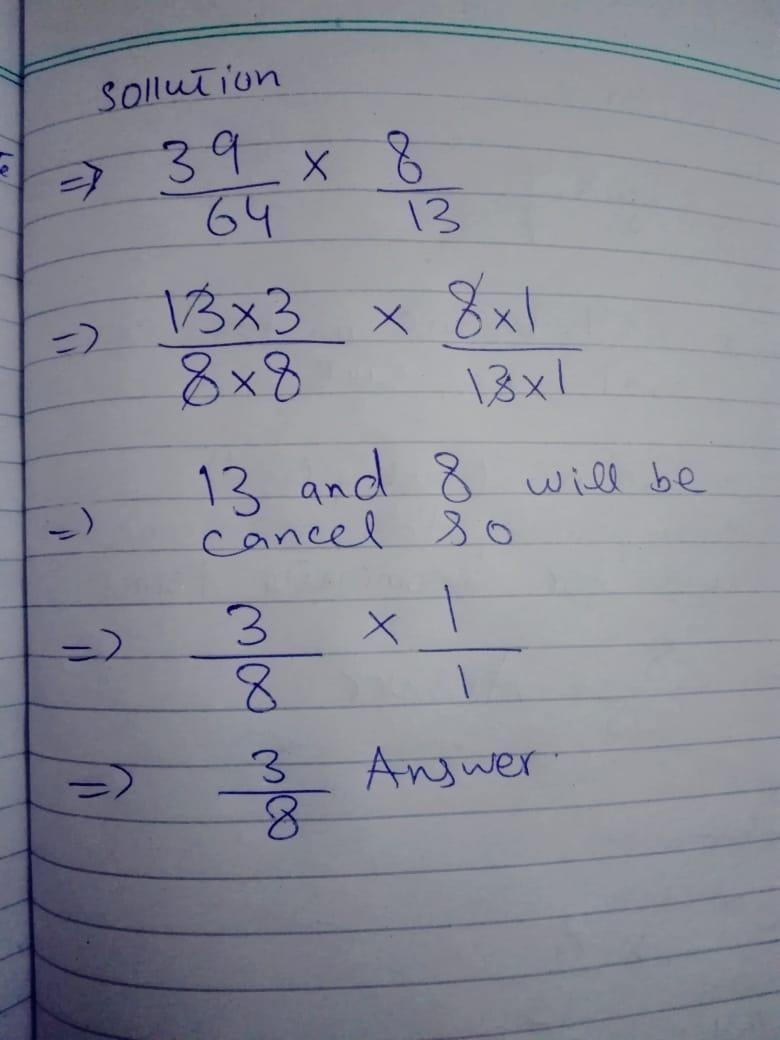 Sollution
=> 39/64 × 8/13
=> 13×3/8×8 × 8×1/13×1
=> 13 and 8 will be
cancel so
=> 3/8 × 1/1
=> 3/8 Answer.